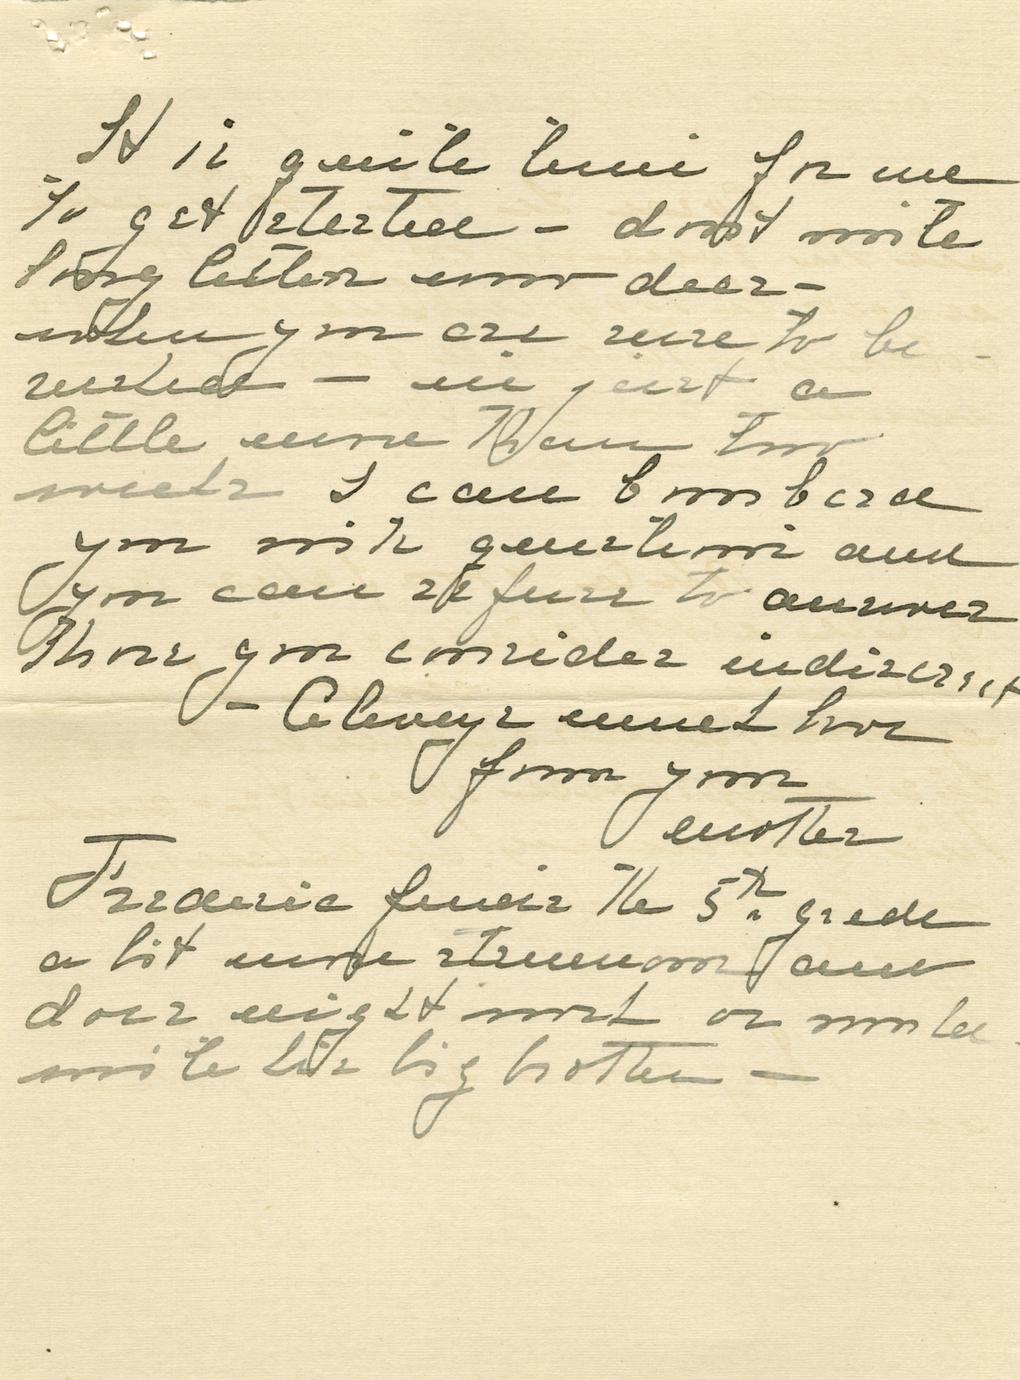 It is quite time for me
to get started - don't write
long letters now dear -
when you are sure to be
rushed - in just a
little more than two
weeks I can bombard
you with questions and
you can refuse to answer
those you consider indiscreet
- Always much love
from your
mother
Frederic finds the 5th grade
a bit more strenuous and
does night work or would
write his big brother -